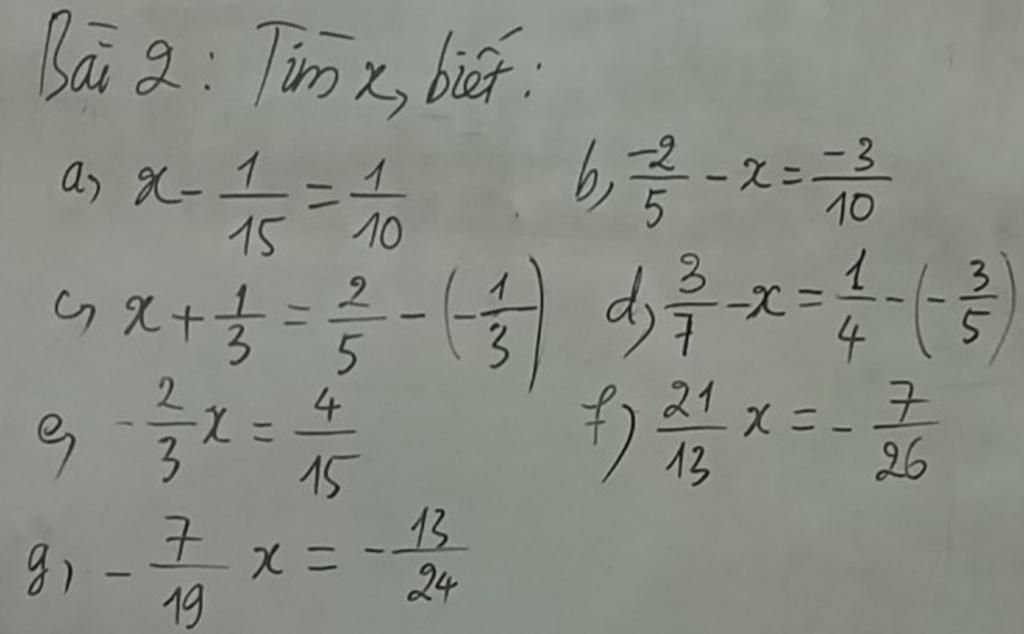 Bài 2: Tìm x, biết:
a, x - 1/15 = 1/10 b, -2/5 - x = -3/10
c, x + 1/3 = 2/5 - (-1/3) d, 3/7 - x = 1/4 - (-3/5)
e, -2/3 x = 4/15 f) 21/13 x = -7/26
g, -7/19 x = -13/24